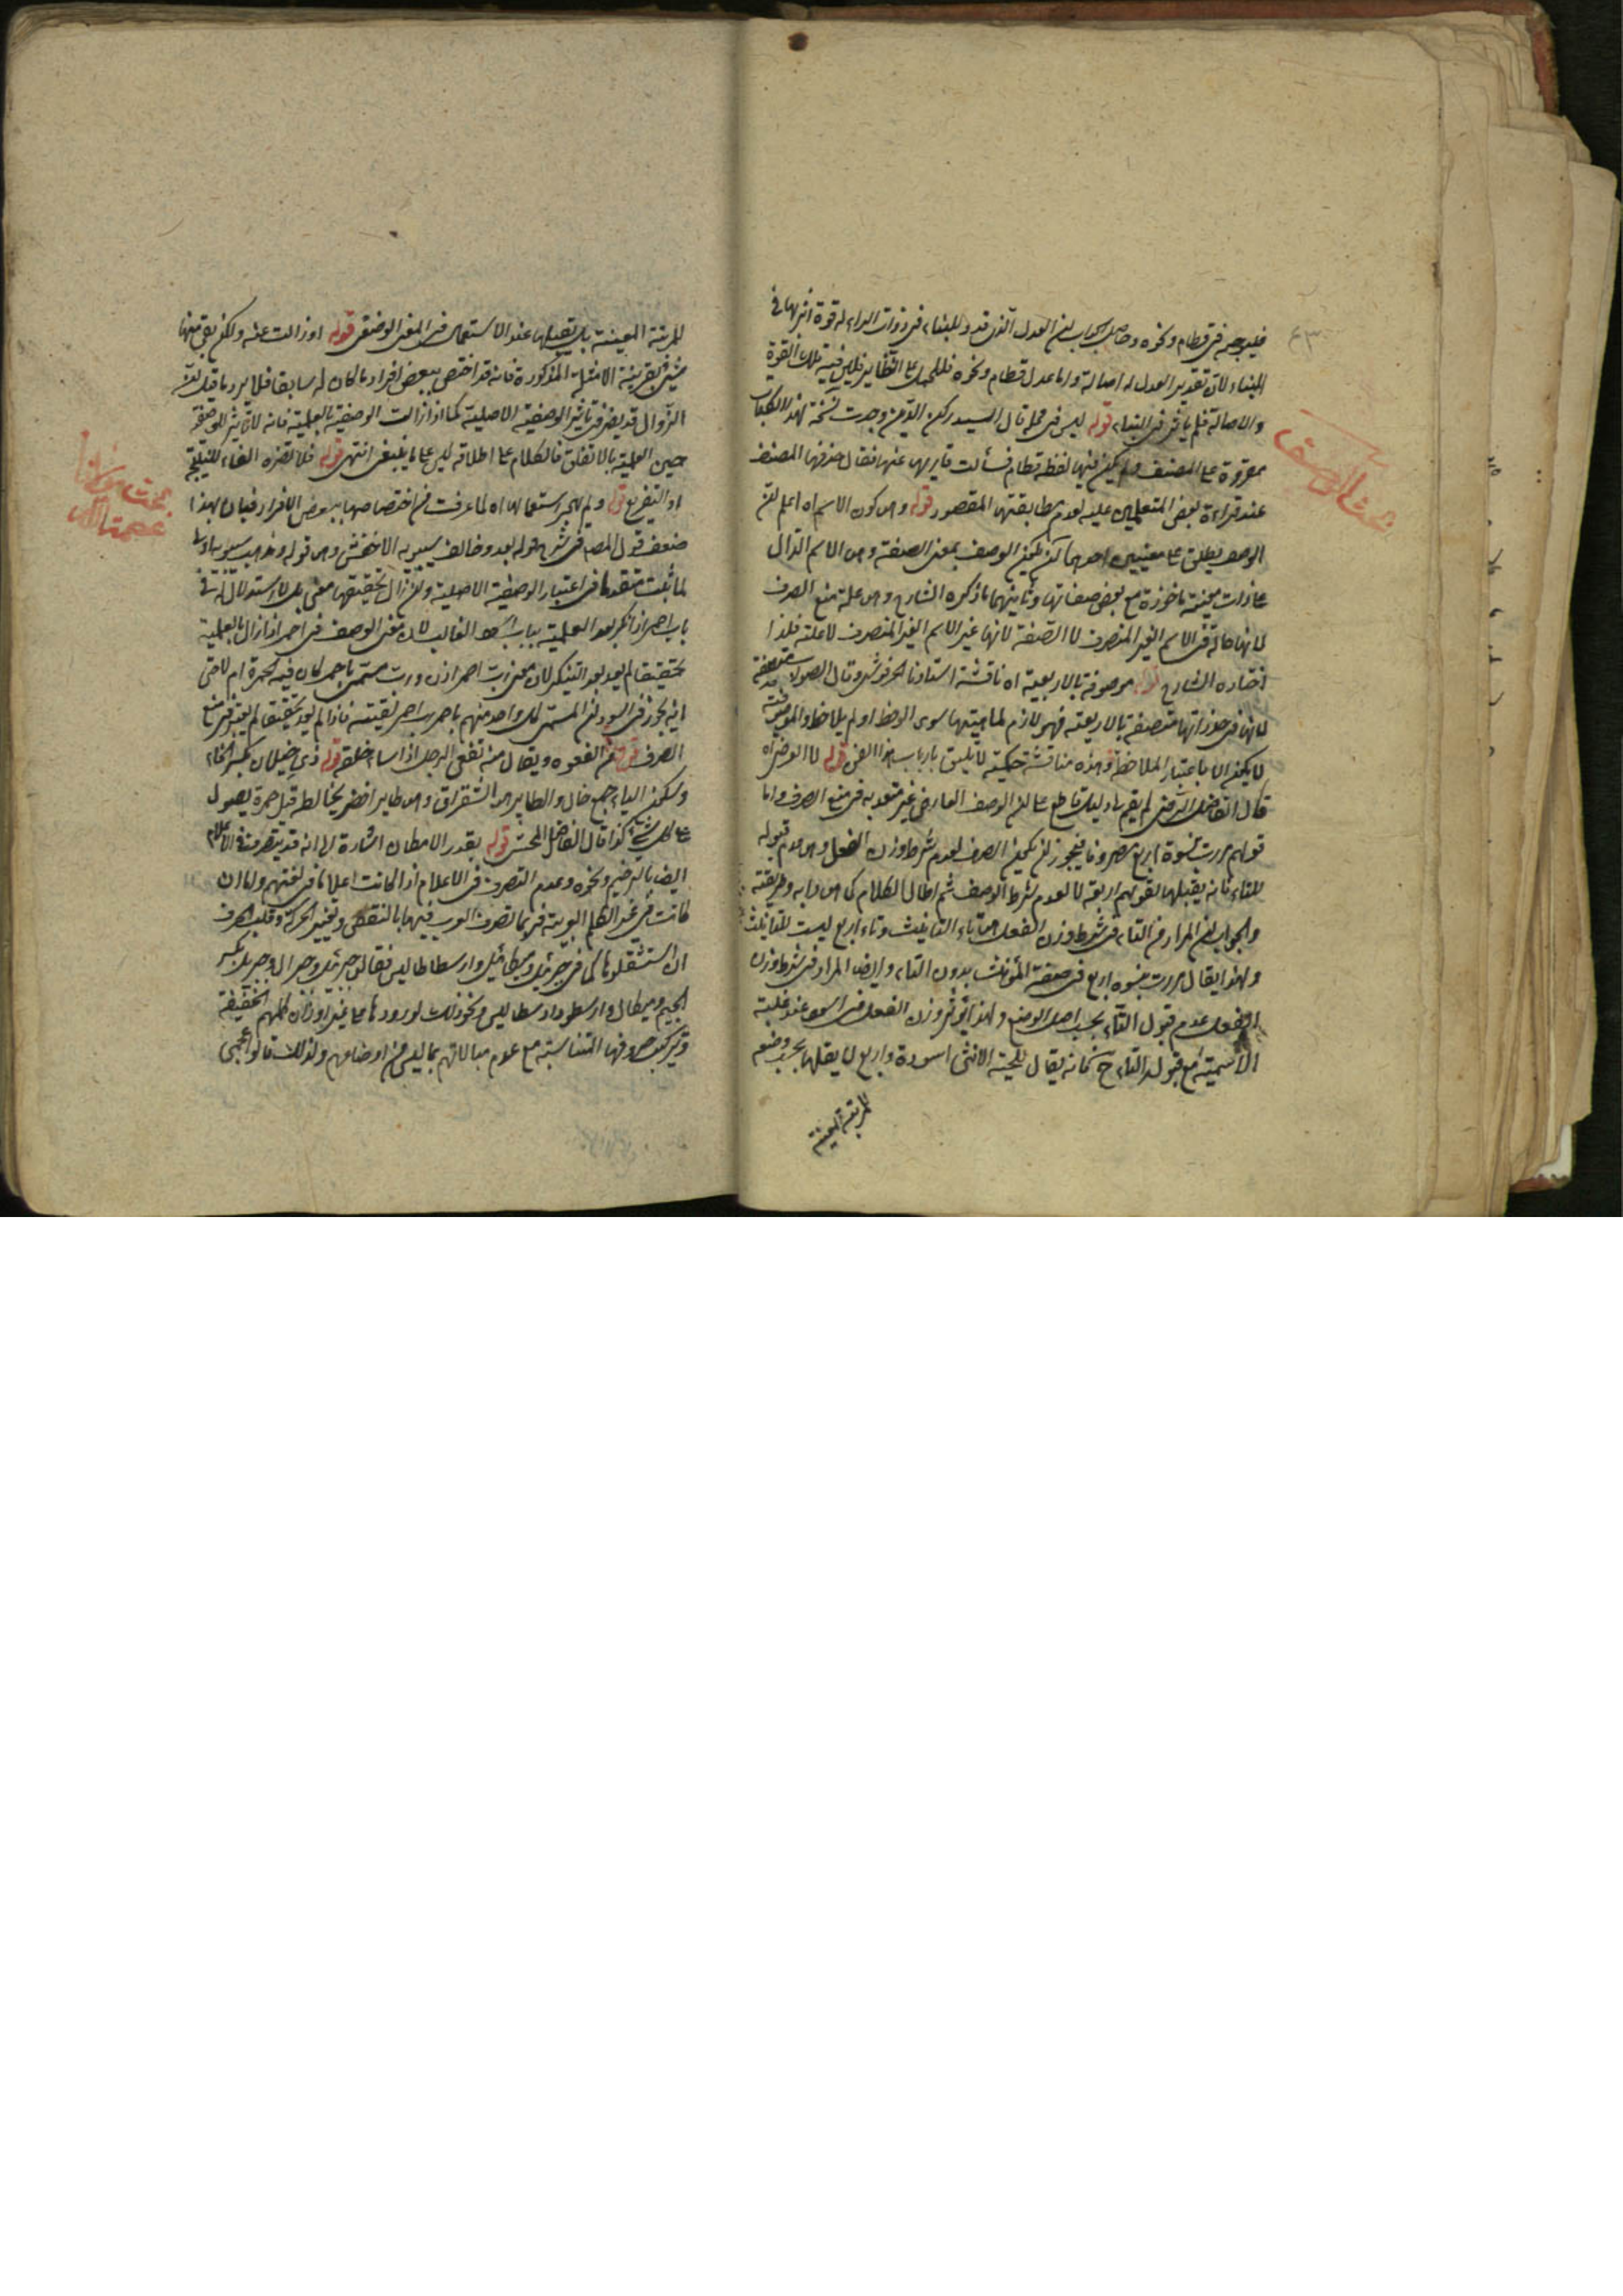 فليوجبه في قطام ونحوه وحاصل الجواب ان العدل الذي قدر للبناء في ذوات الراء له قوة اثرها في
البناء لان تقدير العدل له اصالة واما عدل قطام ونحوه فللحمل على النظاير فليس فيه تلك القوة
والاصالة فلم يؤثر في البناء قوله ليس في محله قال السيد ركن الدين وجدت نسخة لهذا الكتاب
مقروة على المصنف ولم يكن فيها لفظ قطام فسألت قاريها عنها فقال حذفها المصنف
عند قراءة بعض المتعلمين عليه لعدم مطابقتها المقصود قوله وهو كون الاسم اه اعلم ان
الوصف يطلق على معنيين احدهما ان يكون الوصف بمعنى الصفة وهو الاسم الدال
على ذات معينة ماخوذة مع بعض صفاتها وثانيهما ما ذكره الشارح وهو علة منع الصرف
لانها حالة في الاسم الغير المنصرف لا الصفة لانها عين الاسم الغير المنصرف لا علته فلذا
اختاره الشارح قوله موصوفة بالاربعية اه ناقشه استاذنا وقال الصواب متصفة
لانها في حد ذاتها متصفة بالاربعية فهو لازم لماهيتها سوى الوحظ او لم يلاحظ والموصوفية
لا يكون الا باعتبار الملاحظة وهذه مناقشة حكمية لا يليق بارباب هذا الفن قوله لا العرضي اه
قال الفاضل الرضي لم يقم لي دليل قاطع على ان الوصف العارض غير معتد به في منع الصرف واما
قولهم مررت بنسوة اربع مصروفا فيجوز ان يكون الصرف لعدم شرط وزن الفعل وهو عدم قبوله
للتاء فانه يقبلها لقولهم اربعة لا لعدم شرط الوصف ثم اطال الكلام كما هو دابه وطريقته
والجواب ان المراد من التاء في شرط وزن الفعل هو تاء التانيث وتاء اربع ليست للتانيث
ولهذا يقال مررت بنسوة اربع في صفة المؤنث بدون التاء وايضا المراد في شرط وزن
الفعل عدم قبول التاء بحسب اصل الوضع ولهذا يؤثر وزن الفعل في اسود عند غلبته
الاسمية مع قبوله التاء ح فانه يقال للحية الانثى اسودة واربع لا يقبلها بحسب وضعه
للمرتبة المعينة
٤٣
بحث الوصف
للمرتبة المعينة بل يقبلها عند الاستعمال في المعنى الوصفي قوله او زالت عنه ولكن بقي معها
شيء بقرينة الامثلة المذكورة فانه قد اختص ببعض افراد ما كان له سابقا فلا يرد ما قيل ان
الزوال قد يضر في تأثير الوصفية الاصلية كما اذا زالت الوصفية بالعلمية فانه لا تأثير للوصف
حين العلمية بالاتفاق فالكلام على اطلاقه ليس على ما ينبغي انتهى قوله فلا تضره الفاء للنتيجة
او التفريع قوله ولم يهجر استعمالها اه لما عرفت من اختصاصها ببعض الافراد فبان بهذا
ضعف قول المص في شرح قوله بعد وخالف سيبويه الاخفش وهو قوله ومذهب سيبويه اولى
لما ثبت متقدما في اعتبار الوصفية الاصلية وان زال تحقيقها معنى بل لا استدلال له في
باب احمر اذا نكر بعد العلمية بباب اسود الغالب لان معنى الوصف في احمر اذا زال بالعلمية
تحقيقا لم يعد بعد التنكير لان معنى رب احمر اذن رب مسمى باحمر كان فيه الحمرة ام لا حتى
انه يجوز في السودان المسمى كل واحد منهم باحمر رب احمر لقيته فاذا لم يعد تحقيقا لم يعتبر في منع
الصرف قوله من الفعوة ويقال منه تفعى الرجل اذا ساء خلقه قوله ذي خيلان بكسر الخاء
وسكون الياء جمع خال والطاير هو الشقراق وهو طاير اخضر يخالطه قليل حمرة يصول
على كل شيء كذا قال الفاضل المحشي قوله بقدر الامكان اشارة الى انه قد يتصرف في الاعلام
ايضا بالترخيم ونحوه وعدم التصرف في الاعلام اذا كانت اعلاما في لغتهم ولما ان
كانت في غير الكلم العربية فربما تصرف العرب فيها بالنقص وتغيير الحركة وقلب الحرف
ان استثقلوها كما في جبرئيل وميكائيل وارسطاطاليس فقالوا جبرئل وجبرال وجبريل بكسر
الجيم وميكال وارسطو وارسطاليس ونحو ذلك لورودها على غير اوزان كلمهم الخفيفة
وتركيب حروفها المتناسبة مع عدم مبالاتهم بما ليس من اوضاعهم ولذلك قالوا اعجمي
بحث مولانا
عصمت الله